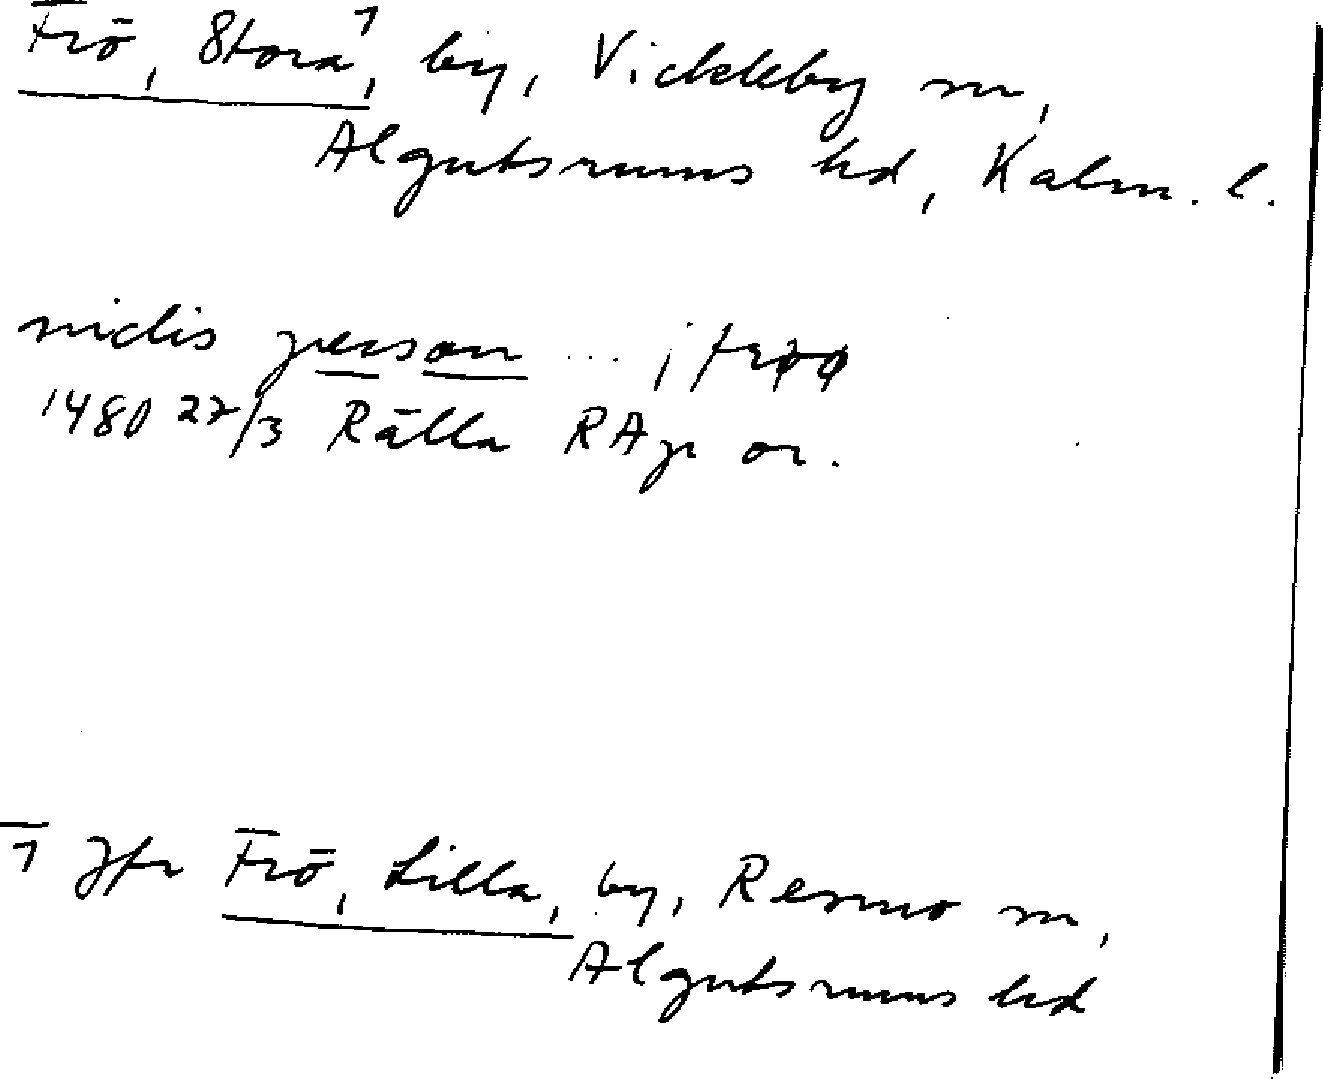 Frö, Stora¹, by, Vickleby sn,
Algutsrums hd, Kalm. l.
nidis person ... j frøø
1480 27/3 Rälla RAp or.
1 Jfr Frö, Lilla, by, Resmo sn,
Algutsrums hd